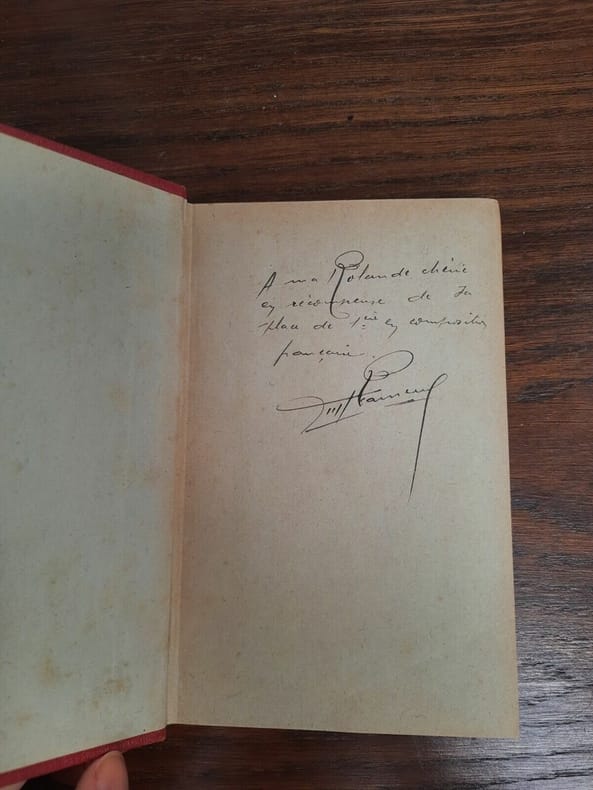 A ma Rolande chérie
en récompense de sa
place de 1ère en composition
française.